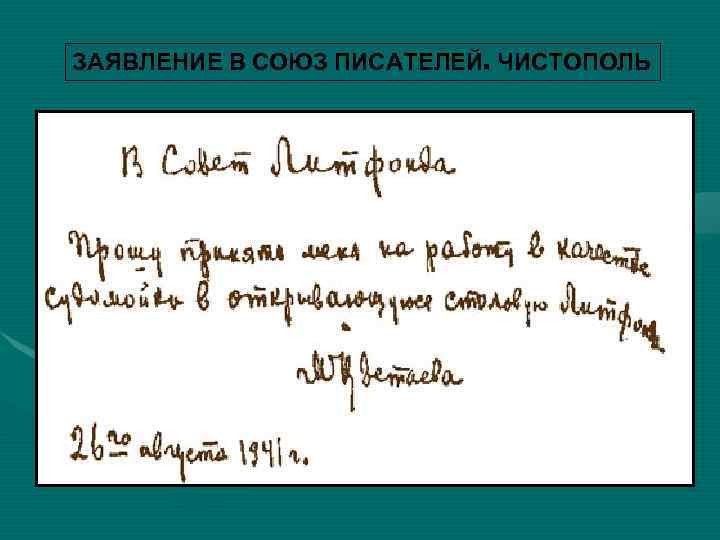 ЗАЯВЛЕНИЕ В СОЮЗ ПИСАТЕЛЕЙ. ЧИСТОПОЛЬ
В Совет Литфонда
Прошу принять меня на работу в качестве
судомойки в открывающуюся столовую Литфонда
МЦветаева
26го августа 1941 г.